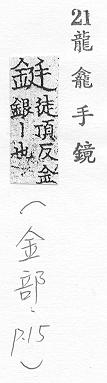 21 龍龕手鏡
鋌徒頂反金
銀丨也
(金部、p.15)